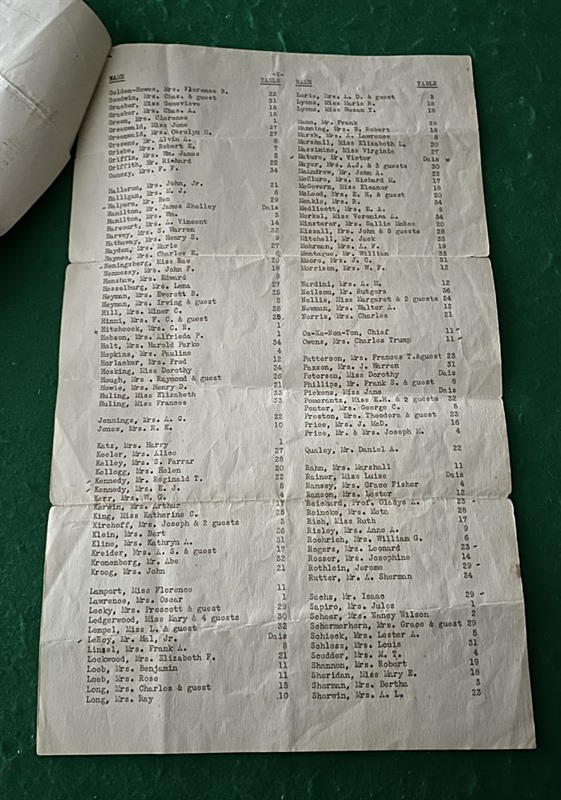 -2-
NAME TABLE
Golden-Howes, Mrs. Florence B. 22
Goodwin, Mrs. Chas. & guest 31
Graeber, Miss Genevieve 18
Graeber, Mrs. Chas. A. 18
Green, Mrs. Clarence 1
Greenwald, Miss June 27
Greenwald, Mrs. Carolyn H. 27
Mrs. M. J.
Mr. Alvin A.
Griebe, Mrs. Robert E. 7
Griffin, Mrs. Wm. James 2
Griffith, Mr. Richard 22
Mrs. F. F. 34
Halleron, Mrs. John, Jr. 21
Halligan, Mrs. 6
Halpern, Mr. Ben 29
Hamilton, Mr. James Shelley Dais
Hamilton, Mrs. Wm. 3
Harcourt, Mrs. A. Vincent 14
Harvey, Mrs. S. Warren 32
Hathaway, Mrs. Henry S. 9
Hayden, Mrs. Marie 27
Haynes, Mrs. Charles E. 6
Heningsberg, Miss Rae 29
Hennessy, Mrs. John P. 18
Henshaw, Mrs. Edward 9
Hesselburg, Mrs. Lena 27
Heyman, Mrs. Everett B. 25
Heyman, Mrs. Irving & guest 2
Hill, Mrs. Miner C. 28
Hinni, Mrs. F. C. & guest 25
Hitchcock, Mrs. C. N. 1
Hobson, Mrs. Alfrieda P. 1
Holt, Mrs. Harold Parks 34
Hopkins, Mrs. Pauline 4
Horlacker, Mrs. Fred 12
Hosking, Miss Dorothy 24
Hough, Mrs. Raymond & guest 26
Howie, Mrs. Henry D. 21
Huling, Miss Elizabeth 33
Huling, Miss Frances 33
Jennings, Mrs. A. G. 22
Jones, Mrs. R. K. 10
Katz, Mrs. Harry 1
Keeler, Mrs. Alice 27
Kelley, Mrs. S. Farrar 28
Kellogg, Mrs. Helen 20
Kennedy, Mr. Reginald T. 22
Kennedy, Mrs. E. J. 5
Kerr, Mrs. W. G. 4
Kerwin, Mrs. Arthur 17
King, Miss Katherine C. 25
Kirchoff, Mrs. Joseph & 2 guests 3
Klein, Mrs. Bert 26
Kline, Mrs. Kathryn A. 31
Kreider, Mrs. A. S. & guest 17
Kronenberg, Mr. Abe 32
Kroog, Mrs. John 21
Lamport, Miss Florence 11
Lawrence, Mrs. Oscar 1
Lecky, Mrs. Prescott & guest 29
Ledgerwood, Miss Mary & 4 guests 30
Lempel, Miss L. & guest 32
LeRoy, Mr. Hal, Jr. Dais
Linsel, Mrs. Frank A. 8
Lockwood, Mrs. Elizabeth F. 21
Loeb, Mrs. Benjamin 11
Loeb, Mrs. Rose 11
Long, Mrs. Charles & guest 15
Long, Mrs. Ray 10
NAME TABLE
Lorie, Mrs. A. D. & guest 3
Lyons, Miss Marie R. 18
Lyons, Miss Susan T. 18
Mann, Mr. Frank 29
Manning, Mrs. E. Robert 18
Marsh, Mrs. A. Lawrence 8
Marshall, Miss Elizabeth L. 20
Massimino, Miss Virginia 27
Mature, Mr. Victor Dais
Mayer, Mrs. A.J. & 3 guests 30
McAndrew, Mr. John A. 22
McClure, Mrs. Richard M. 17
McGovern, Miss Eleanor 18
McLeod, Mrs. E. H. & guest 20
Menkle, Mrs. R. 34
Medlicott, Mrs. E. A. 8
Merkel, Miss Veronica A. 34
Minsterer, Mrs. Sallie Makee 20
Missall, Mrs. John & 5 guests 28
Mitchell, Mr. Jack 33
Mohrman, Mrs. A. F. 19
Montague, Mr. William 33
Moore, Mrs. J. C. 31
Morrison, Mrs. W. F. 12
Nardini, Mrs. A. M. 12
Neilson, Mr. Rutgers 36
Nellis, Miss Margaret & 2 guests 24
Newman, Mrs. Walter A. 12
Norris, Mrs. Charles 21
Os-Ke-Non-Ton, Chief 11
Owens, Mrs. Charles Trump 11
Patterson, Mrs. Frances T.&guest 23
Paxson, Mrs. J. Warren 31
Peterson, Miss Dorothy Dais
Phillips, Mr. Frank S. & guest 6
Pickens, Miss Jane Dais
Pomerantz, Miss E.H. & 2 guests 32
Ponter, Mrs. George C. 8
Preston, Mrs. Theodora & guest 23
Price, Mrs. J. McD. 16
Price, Mr. & Mrs. Joseph M. 4
Qualey, Mr. Daniel A. 22
Rahn, Mrs. Marshall 11
Rainer, Miss Luise Dais
Ramsey, Mrs. Grace Fisher 4
Ranson, Mrs. Lester 12
Reichard, Prof. Gladys A. 23
Reincke, Mrs. Meta 28
Rich, Miss Ruth 17
Risley, Mrs. Anne A. 9
Roehrich, Mrs. William G. 6
Rogers, Mrs. Leonard 23
Rosser, Mrs. Josephine 14
Rothlein, Jerome 29
Rutter, Mr. A. Sherman 24
Sachs, Mr. Isaac 29
Sapiro, Mrs. Jules 1
Schaer, Mrs. Nancy Wilson 2
Schermerhorn, Mrs. Grace & guest 29
Schieck, Mrs. Lester A. 5
Schloss, Mrs. Louis 31
Scudder, Mrs. M. T. 4
Shannon, Mrs. Robert 19
Sheridan, Miss Mary E. 18
Sherman, Mrs. Bertha 3
Sherwin, Mrs. A. L. 23